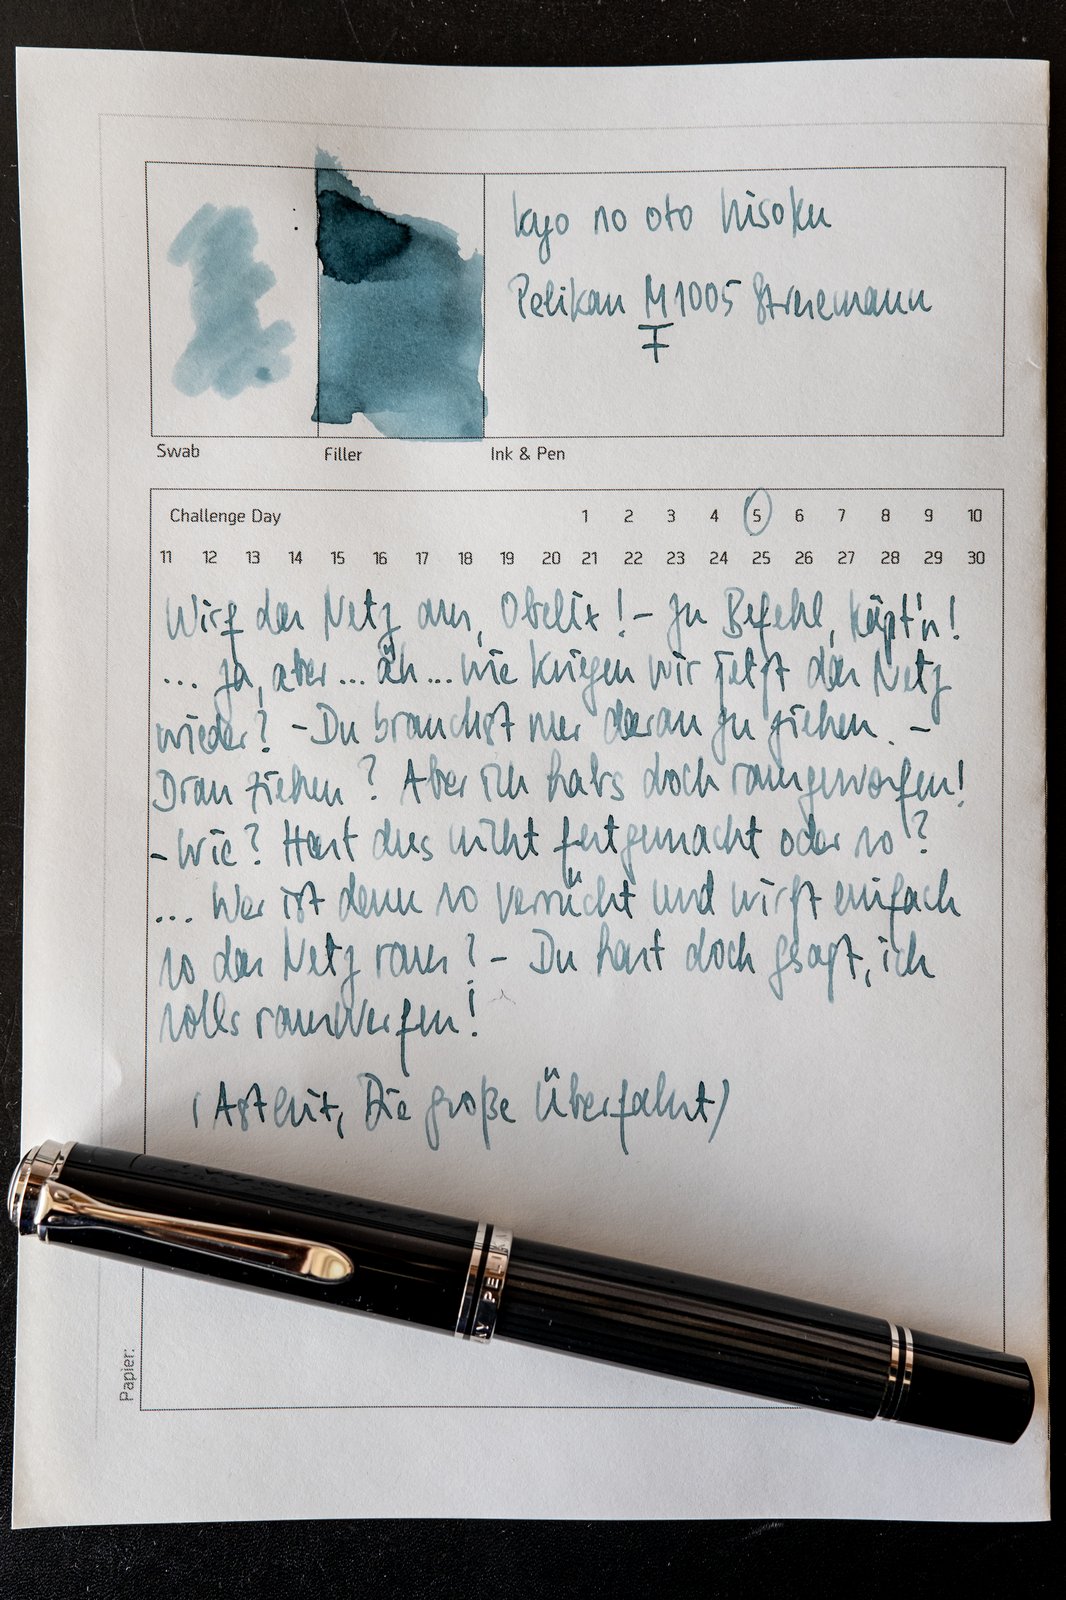 kyo no oto hisoku
Pelikan M1005 Stresemann
F
Swab
Filler
Ink & Pen
Challenge Day 1 2 3 4 5 6 7 8 9 10
11 12 13 14 15 16 17 18 19 20 21 22 23 24 25 26 27 28 29 30
Wirf das Netz aus, Obelix! - Zu Befehl, Käpt'n!
... Ja, aber ... äh ... wie kriegen wir jetzt das Netz
wieder? - Du brauchst nur daran zu ziehen. -
Dran ziehen? Aber ich habs doch rausgeworfen!
- Wie? Hast dus nicht festgemacht oder so?
... Wer ist denn so verrückt und wirft einfach
so das Netz raus? - Du hast doch gsagt, ich
solls rauswerfen!
(Asterix, Die große Überfahrt)
PELIKA
Papier: